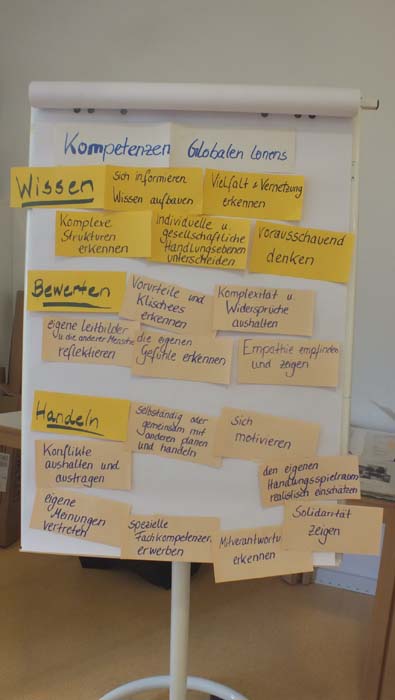 Kompetenzen Globalen Lernens
Wissen
Sich informieren
Wissen aufbauen
Vielfalt & Vernetzung
erkennen
Komplexe
Strukturen
erkennen
Individuelle u.
gesellschaftliche
Handlungsebenen
unterscheiden
Vorausschauend
denken
Bewerten
Vorurteile und
Klischees
erkennen
Komplexität u.
Widersprüche
aushalten
eigene Leitbilder
u. die anderer Mensche
reflektieren
die eigenen
Gefühle erkennen
Empathie empfinden
und zeigen
Handeln
Selbständig oder
gemeinsam mit
anderen planen
und handeln
Sich
motivieren
Konflikte
aushalten und
austragen
den eigenen
Handlungsspielraum
realistisch einschätzen
eigene
Meinungen
vertreten
Spezielle
Fachkompetenzen
erwerben
Mitverantwortu
erkennen
Solidarität
zeigen